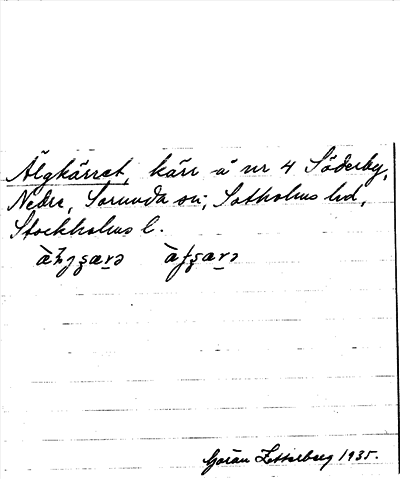 Älgkärret, kärr å nr 4 Söderby,
Nedre, Sorunda sn; Sotholms hd,
Stockholms l.
Göran Zetterberg 1935.